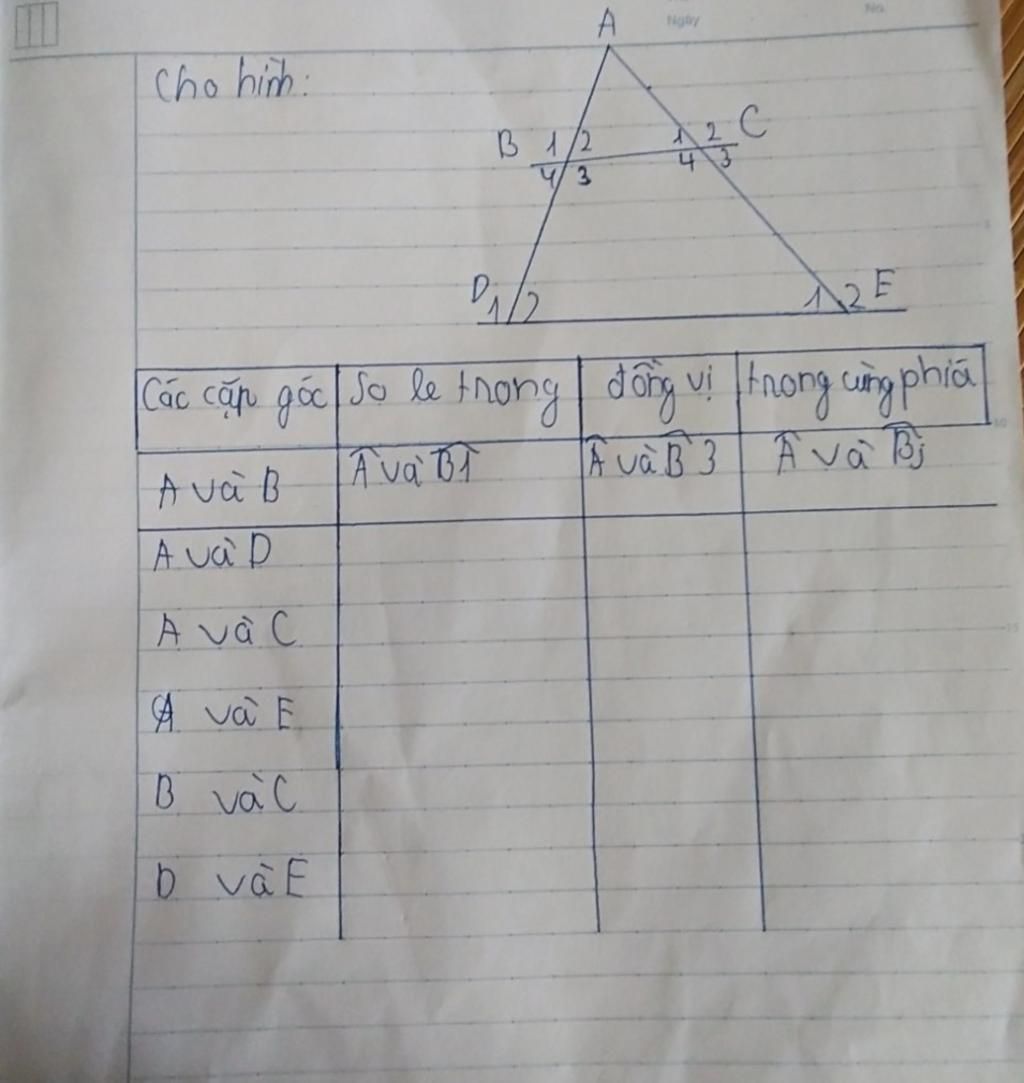 Ngày
No.
Cho hình:
A
B 1 2 1 2 C
4 3 4 3
D 1 2 1 2 E
Các cặp góc So le trong đồng vị trong cùng phiá
A và B Â và B̂1 Â và B̂3 Â và
A và D
A và C
A và E
B và C
D và E